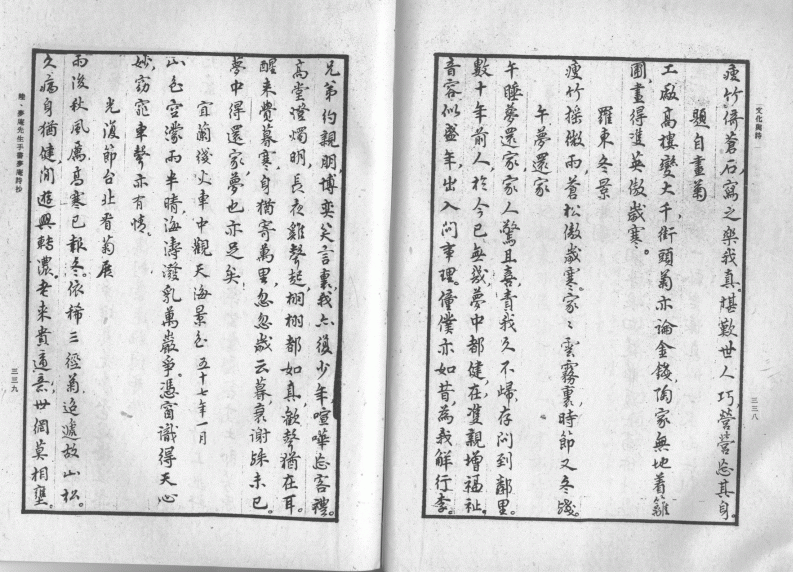 文化陶粹
瘦竹倚蒼石，寫之樂我真。堪歎世人巧營營，忘其身。
題自畫菊
工廠高樓變大千，街頭菊亦論金錢，陶家無地着籬
圃，畫得淮英傲歲寒。
羅東冬景
瘦竹搖微雨，蒼松傲歲寒。家〻雲霧裏，時節又冬殘。
午夢還家
午睡夢還家，家人驚且喜，責我久不歸，存問到鄰里。
數十年前人，於今已無幾，夢中都健在，雙親增福祉。
音容似盛年，出入問事理。僮僕亦如昔，為我解行李。
三三八
兄弟約親朋，博奕笑言裏，我亦復少年，喧嘩忘客禮。
高堂燈燭明，長夜雞聲起，栩栩都如真，歡聲猶在耳。
醒來費摹寒，身猶寄萬里，忽忽歲云暮，衰謝殊未已。
夢中得還家，夢也亦足矣。
宜蘭綫火車中觀天海景色 五十七年一月
山色空濛雨半晴，海濤潑乳萬巖爭。憑窗識得天心
妙，窈窕車聲亦有情。
光復節台北看菊展
雨後秋風厲，高寒已報冬。依稀三徑菊，迢遞故山松。
久病身猶健，閒遊興轉濃，老來貴適意，世網莫相壅。
陸、夢庵先生手書夢庵詩抄
三三九